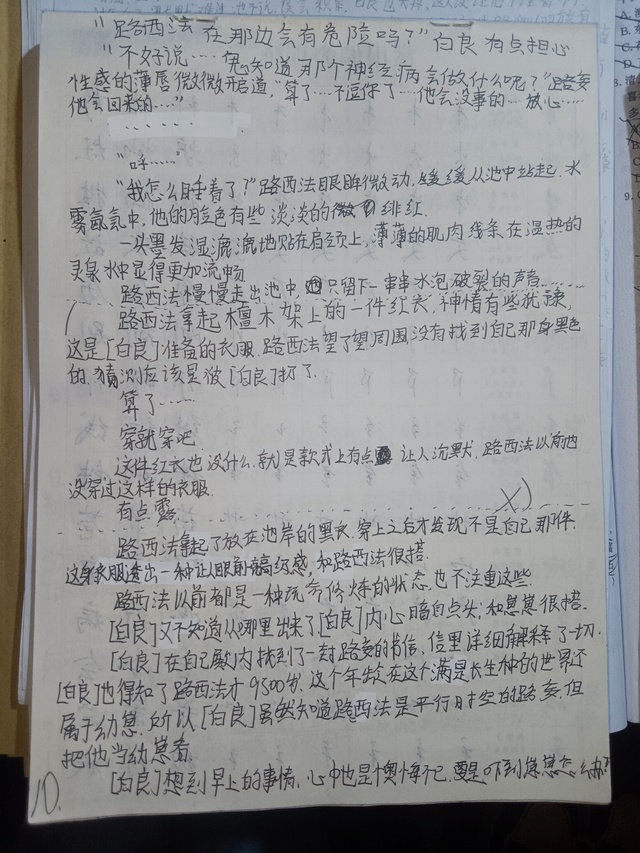 "路西法在那边会有危险吗?"白良有点担心
"不好说……鬼知道那个神经病会做什么呢?"路委
性感的薄唇微微开启道,"算了…不逗你了…他会没事的…放心……
他会回来的…"
……
"呼……"
"我怎么睡着了?"路西法眼眸微动,缓缓从池中站起.水
雾氤氲中,他的脸色有些淡淡的微绯红.
一头墨发湿漉漉地贴在肩颈上,薄薄的肌肉线条在温热的
灵泉水中显得更加流畅
路西法慢慢走出池中,只留下一串串水泡破裂的声音……
路西法拿起檀木架上的一件红衣,神情有些犹豫,
这是[白良]准备的衣服.路西法望了望周围,没有找到自己那身黑色
的.猜测应该是被[白良]扔了.
算了……
穿就穿吧
这件红衣也没什么.就是款式上有点 让人沉默,路西法以前也
没穿过这样的衣服.
有点露.
路西法拿起了放在池岸的黑衣.穿上之后才发现不是自己那件.
这身衣服透出一种让人眼前 感,和路西法很搭.
路西法以前都是一种 修炼的状态.也不注重这些.
[白良]又不知道从哪里出来了[白良]内心暗自点头,和崽崽很搭.
[白良]在自己殿内找到了一封路委的书信,信里详细解释了一切.
[白良]也得知了路西法才9500岁.这个年龄在这个满是长生种的世界还
属于幼崽.所以[白良]虽然知道路西法是平行时空的路委,但
把他当幼崽看.
[白良]想到早上的事情,心中也是懊悔不已,要是吓到崽崽怎么办?
10.